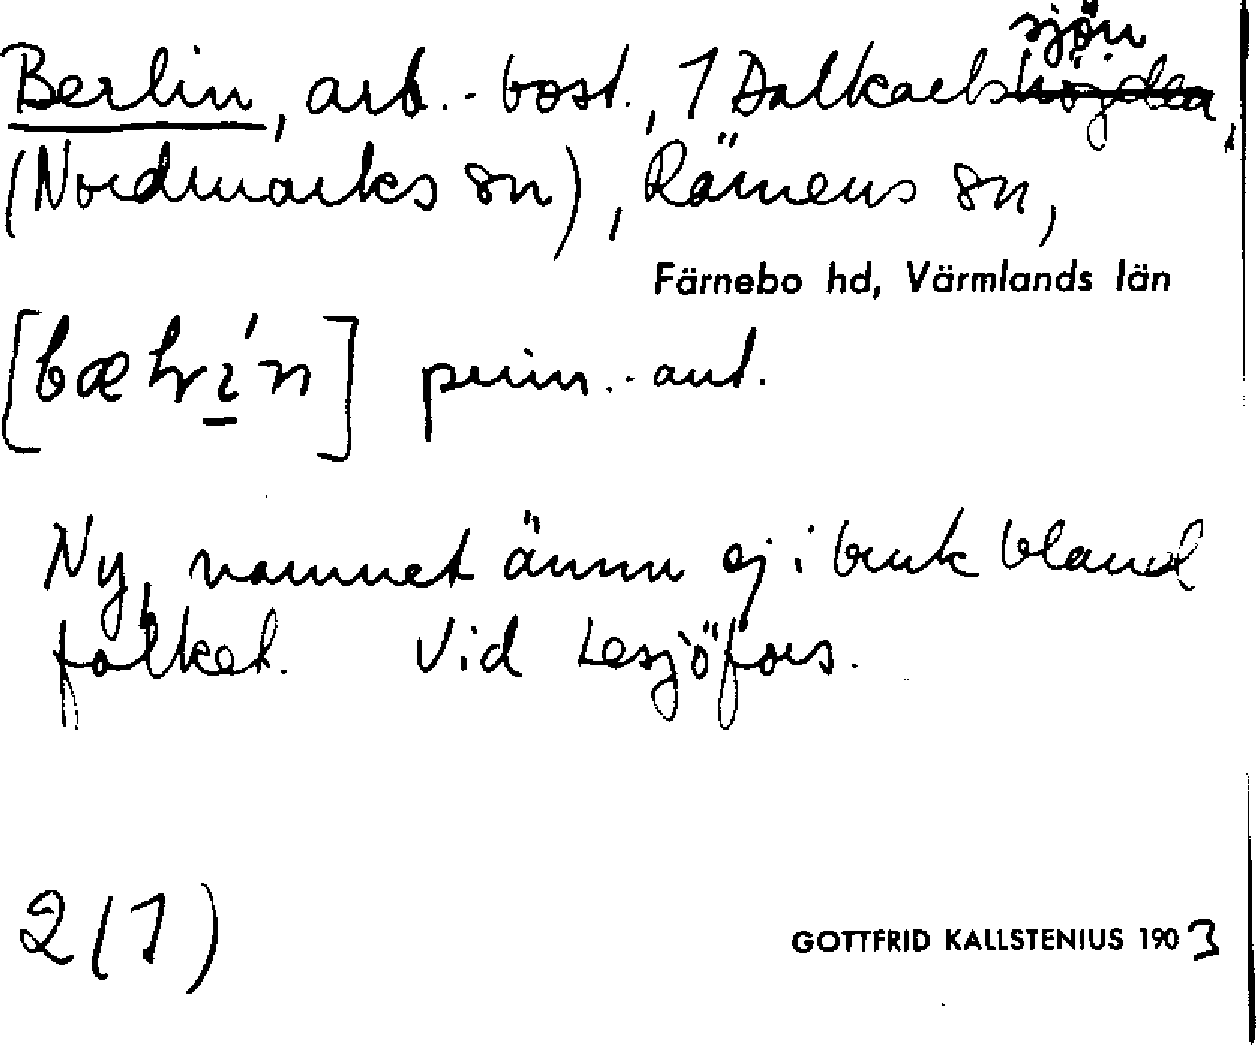 Berlin, arb.-bost., 1 Dalkarlshöjden sjön,
(Nordmarks sn), Rämens sn,
Färnebo hd, Värmlands län
prim.-ant.
Ny, namnet ännu ej i bruk bland
folket. Vid Lesjöfors.
2(1)
GOTTFRID KALLSTENIUS 1903